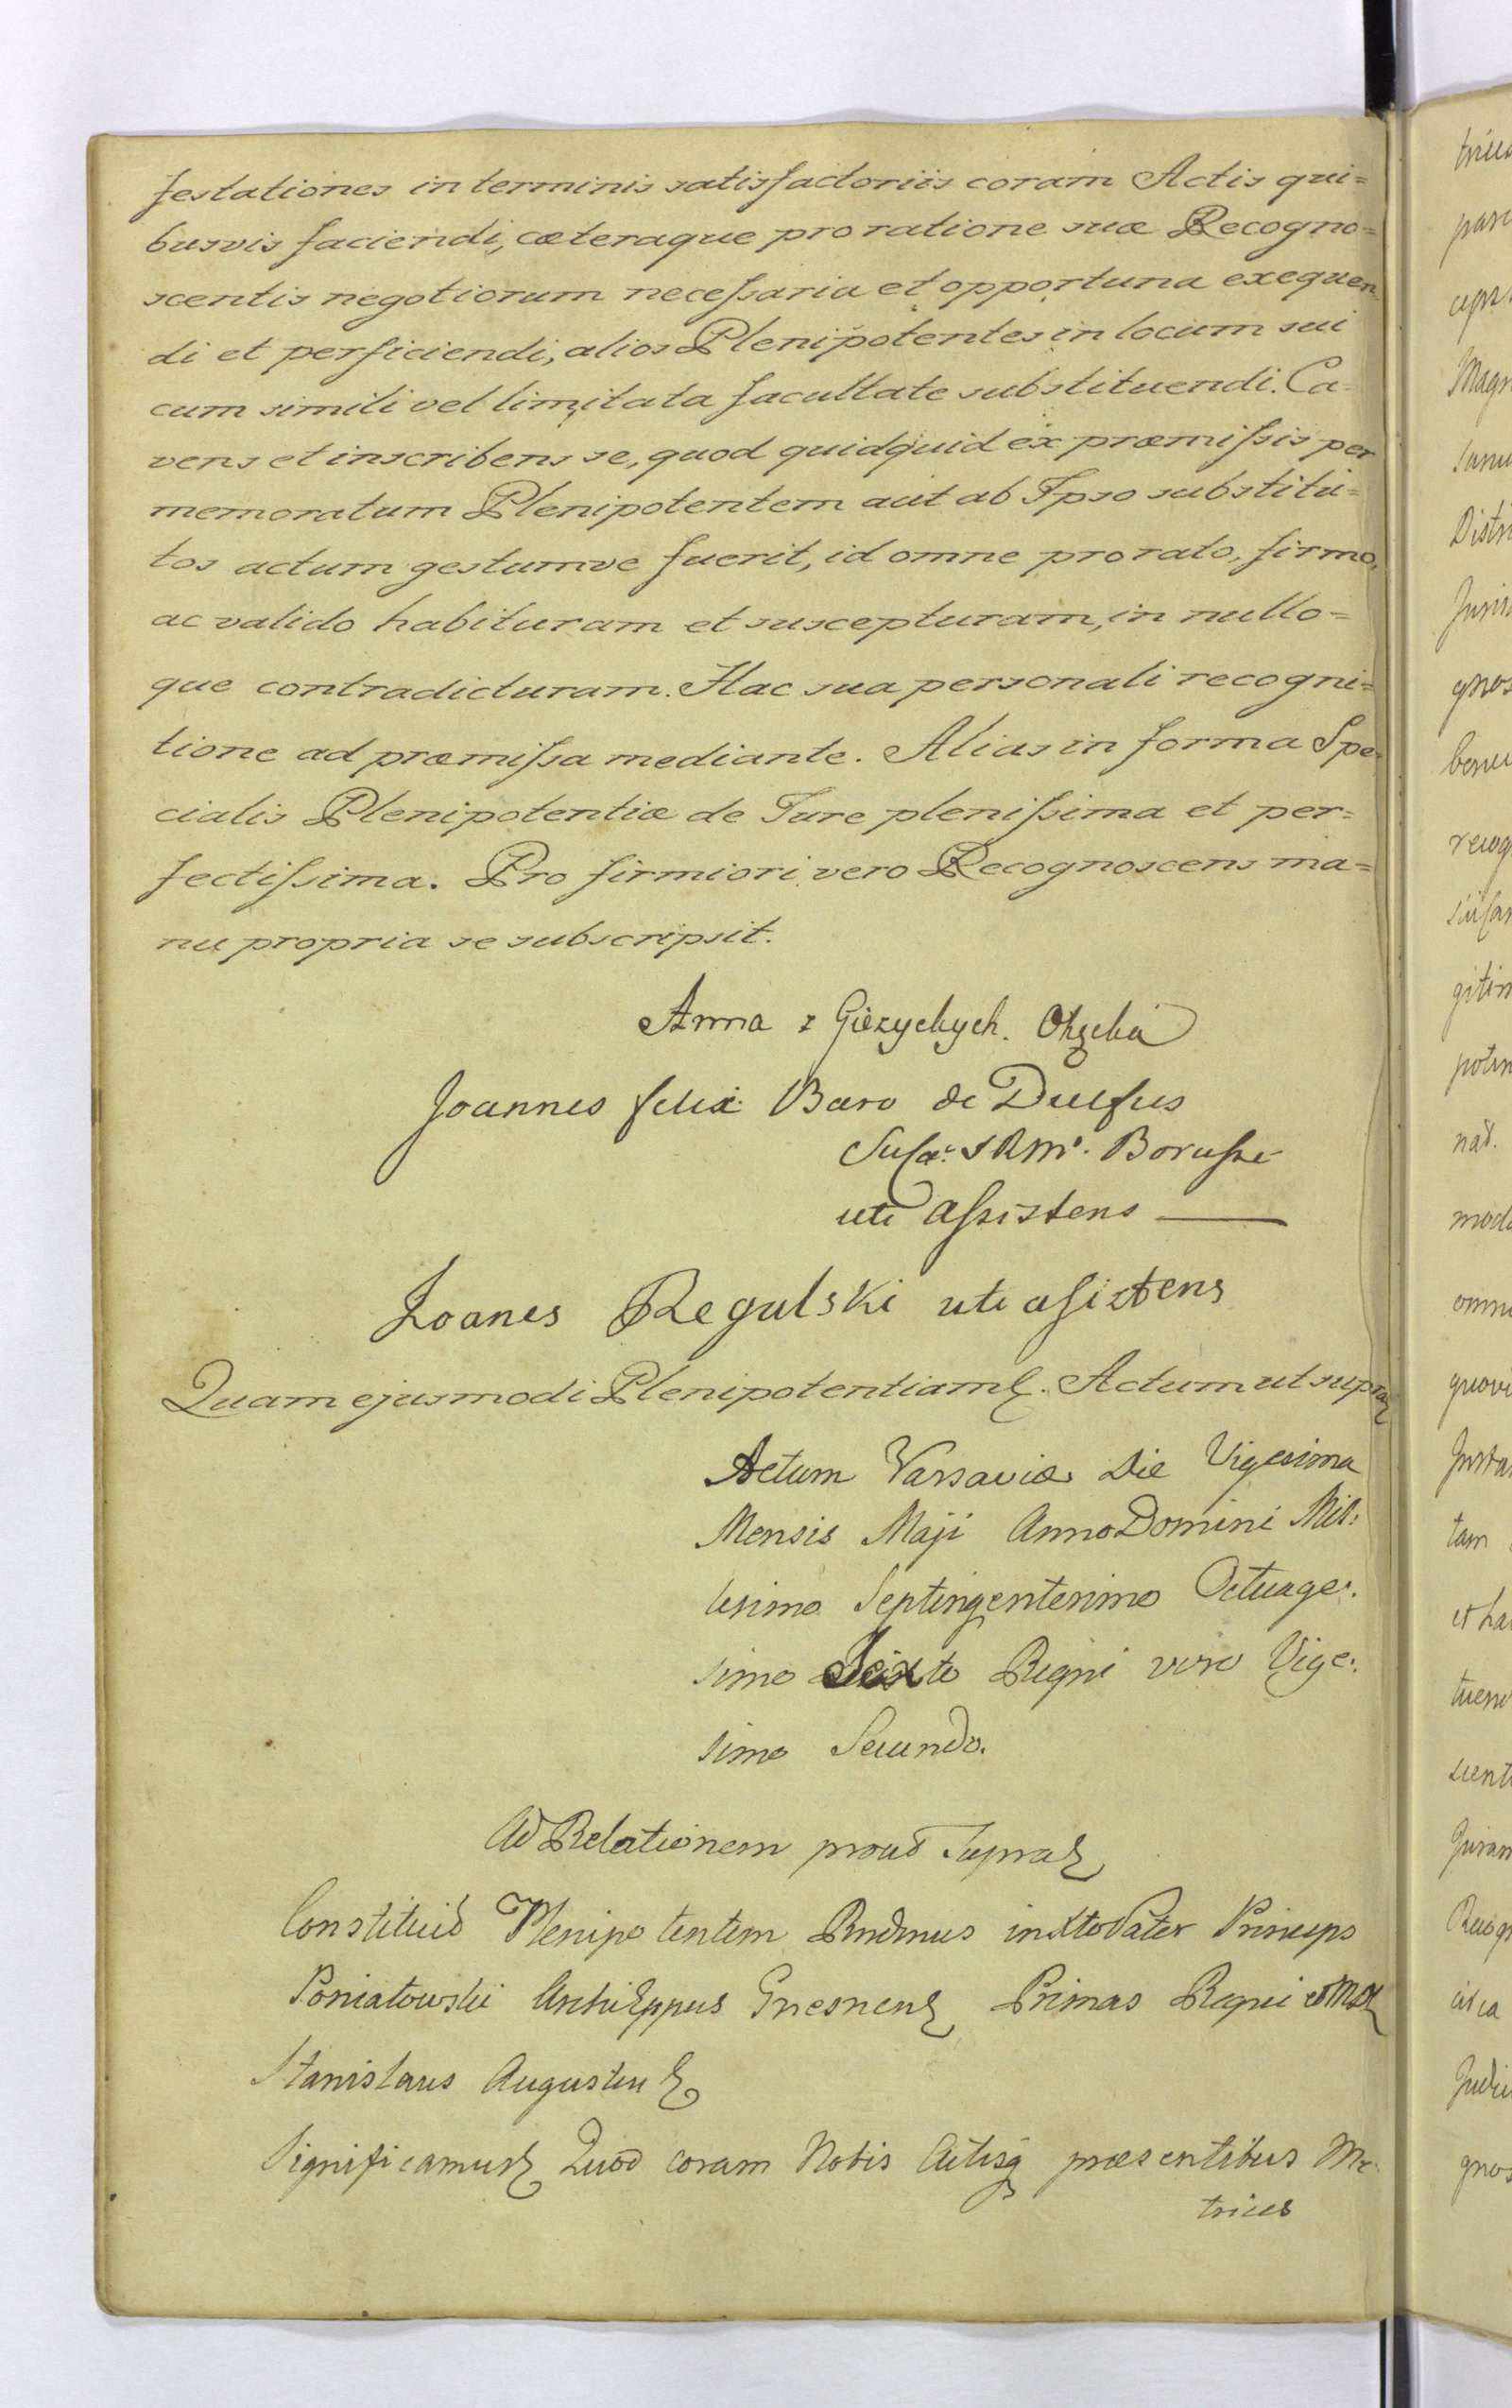 festationes in terminis satisfactoriis coram Actis qui=
busvis faciendi, cæteraque pro ratione suæ Recogno=
scentis negotiorum necessaria et opportuna exequen
di et perficiendi, alios Plenipotentes in locum sui
cum simili vel limitata facultate substituendi. Ca=
vens et inscribens se, quod quidquid ex præmissis per
memoratum Plenipotentem aut ab Ipso substitu=
tos actum gestumve fuerit, id omne pro rato, firmo,
ac valido habituram et suscepturam, in nullo=
que contradicturam. Hac sua personali recogni=
tione ad præmissa mediante. Alias in forma Spe
cialis Plenipotentiæ de Jure plenissima et per=
fectissima. Pro firmiori vero Recognoscens ma=
nu propria se subscripsit.
Anna z Giżyckych
Joannes felix Baro de Dulfus
uti assistens
Joanes Regulski uti asistens
Quam ejusmodi Plenipotentiam Actum ut supra
Actum Varsaviæ Die Vigesima
Mensis Maji Anno Domini Mil:
lesimo Septingentesimo Octuage:
simo Sexto Regni vero Vige:
simo Secundo.
Ad Relationem prout supra
Constituit Plenipotentem Rndmus Pater Princeps
Poniatowski ArchiEppus Gnesnens Primas Regni
Stanislaus Augustus
Significamus Quod coram Nobis Actisq præsentibus Me
trices